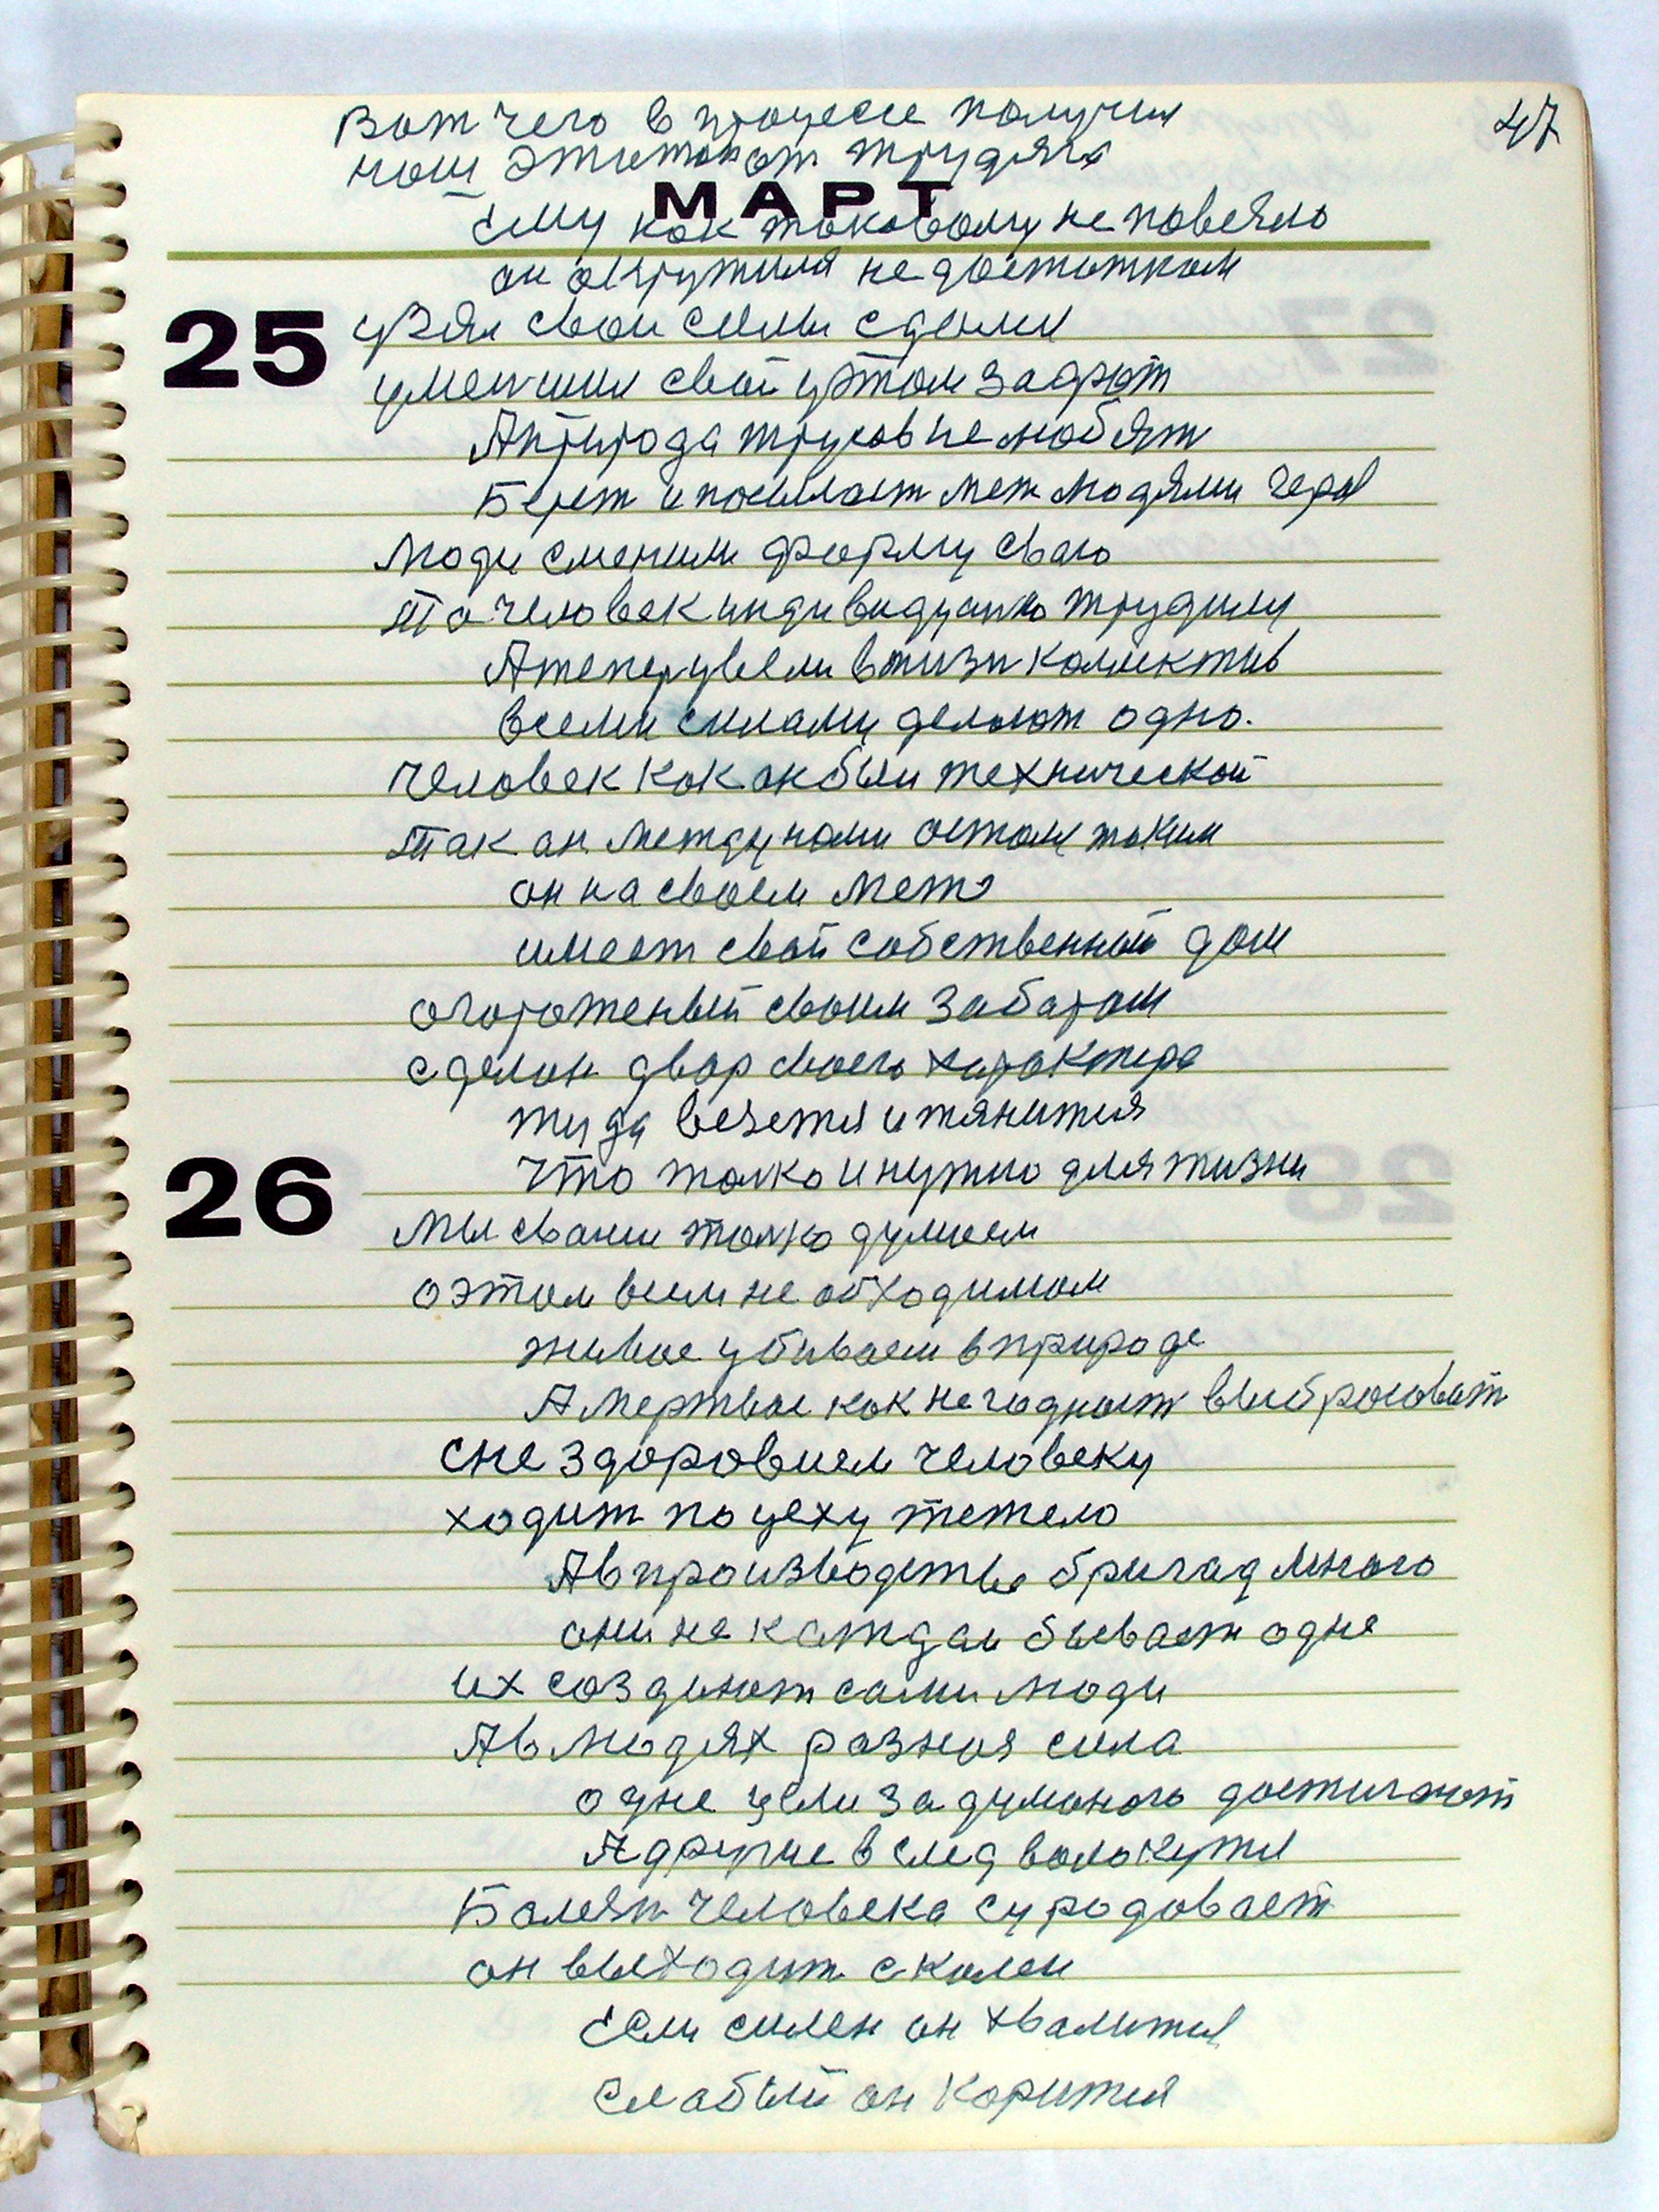 47
Вот чего в процесе получил
наш этот трудяга
МАРТ
Ему как таковому не повеяло
он окружился недостатком
25
узял свои силы сдался
уменшил свой у этом задрот
А природа трусов не любят
Берет и посылает меж людями
Люди сменили форму сваю
То человек индивидуално трудился
А теперу вели в жизн колектив
всеми силами делают одно.
человек как он был технической
Так он между нами остался таким
он на своем месте
имеет свой собственный дом
огороженый своим забаром
сделан двор своего характера
туда везется и тянится
26
что толко и нужно для жизни
Мы с вами толко думаем
о этом всем не обходимом
живое убиваем в природе
А мертвое как негодност выбросоват
с не здоровием человеку
ходит по цеху тежело
А в производстве бригад много
они не каждаи бывает одне
их создают сами люди
А в людях разная сила
одне цели задуманого достигают
А другие в след волокутся
Болезн человека суродовает
он выходит с колеи
Если силен он хвалится
Слабый он корится